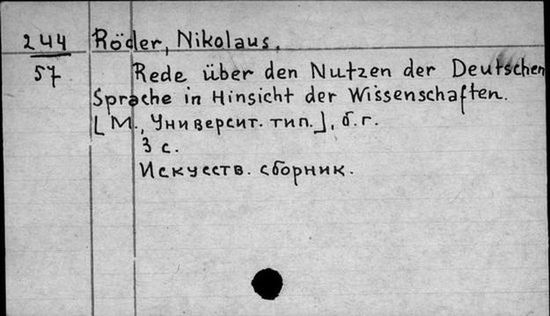 244 Röder, Nikolaus.
57 Rede über den Nutzen der Deutschen
Sprache in Hinsicht der Wissenschaften.
[М., Университ. тип.], б.г.
3 с.
Искусств. сборник.